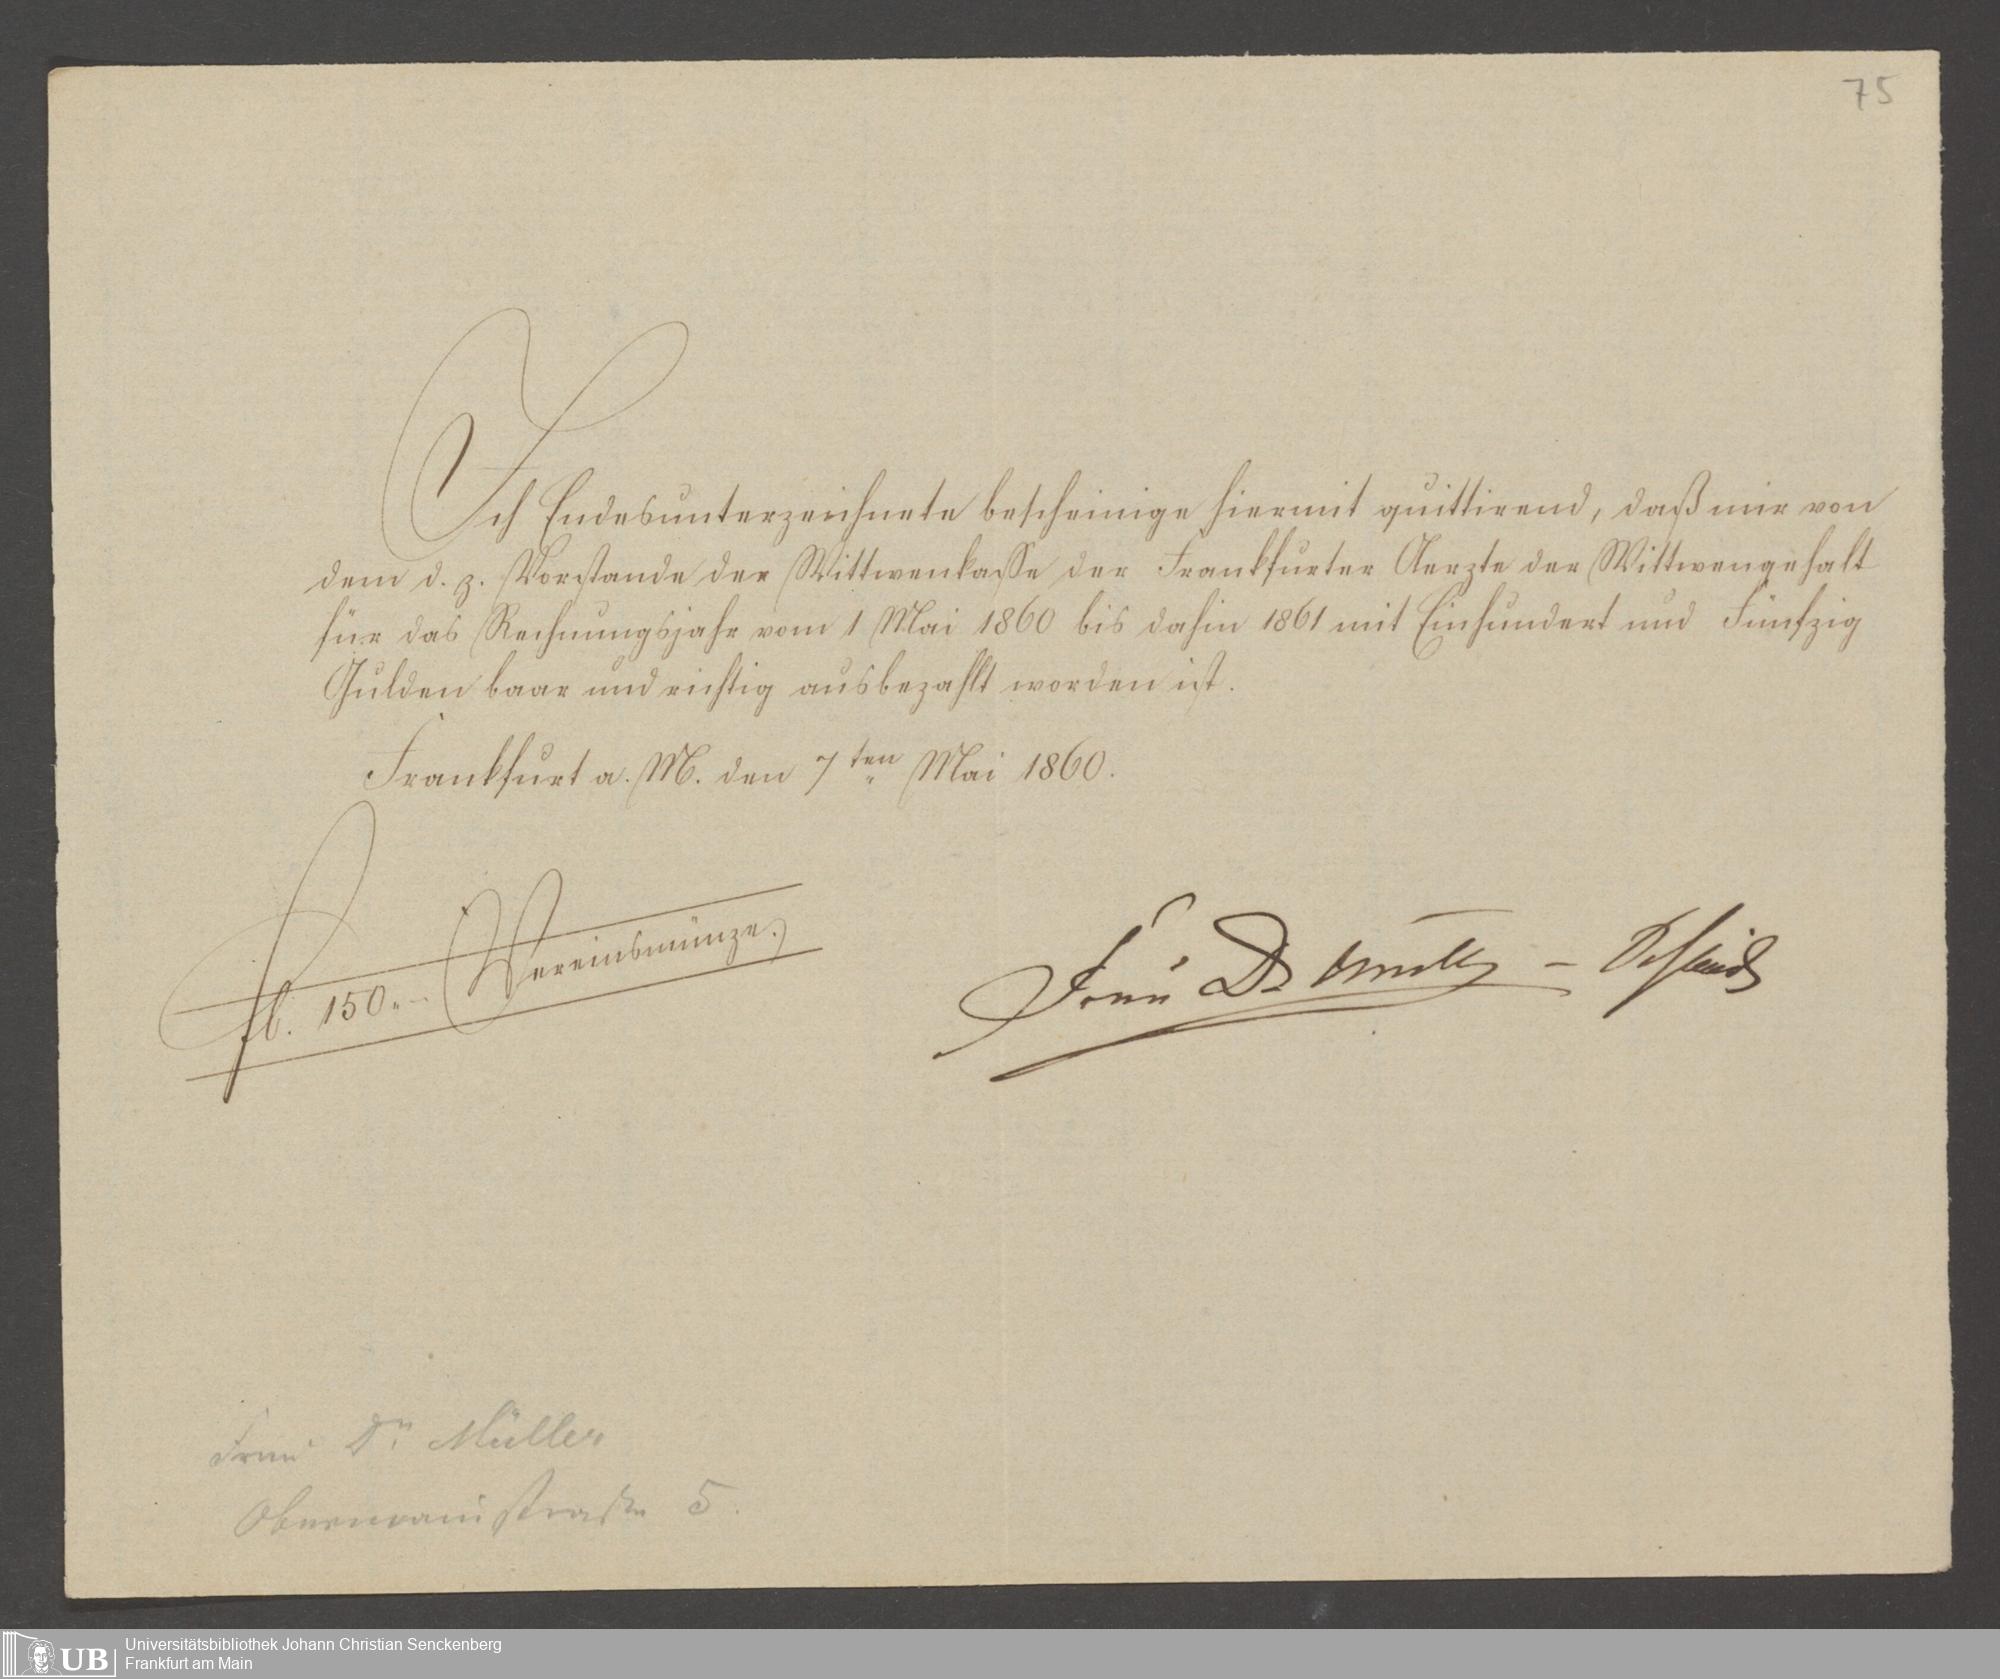 75
Ich Endesunterzeichnete bescheinige hiermit quittirend, daß mir von
dem d. z. Vorstande der Wittwenkasse der Frankfurter Aerzte der Wittwengehalt
für das Rechnungsjahr vom 1 Mai 1860 bis dahin 1861 mit Einhundert und Fünfzig
Gulden baar und richtig ausbezahlt worden ist.
Frankfurt a. M. den 7ten Mai 1860.
fl. 150.- Vereinsmünze.
Frau Dr Müller -
Frau Dr. Müller
Obermainstraße 5.
UB Universitätsbibliothek Johann Christian Senckenberg
Frankfurt am Main